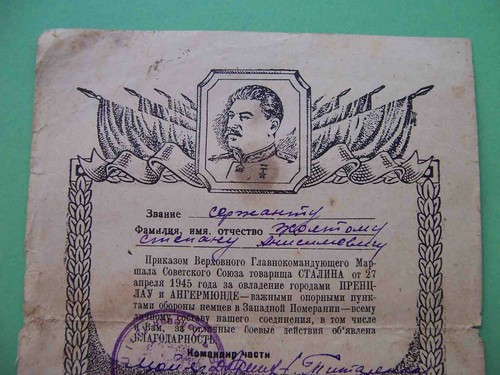 Звание сержанту
Фамилия, имя, отчество Жолтому
Степану Анисимовичу
Приказом Верховного Главнокомандующего Мар-
шала Советского Союза товарища СТАЛИНА от 27
апреля 1945 года за овладение городами ПРЕНЦ-
ЛАУ и АНГЕРМЮНДЕ—важными опорными пунк-
тами обороны немцев в Западной Померании—всему
личному составу нашего соединения, в том числе
и Вам, за отличные боевые действия об'явлена
БЛАГОДАРНОСТЬ
Командир части